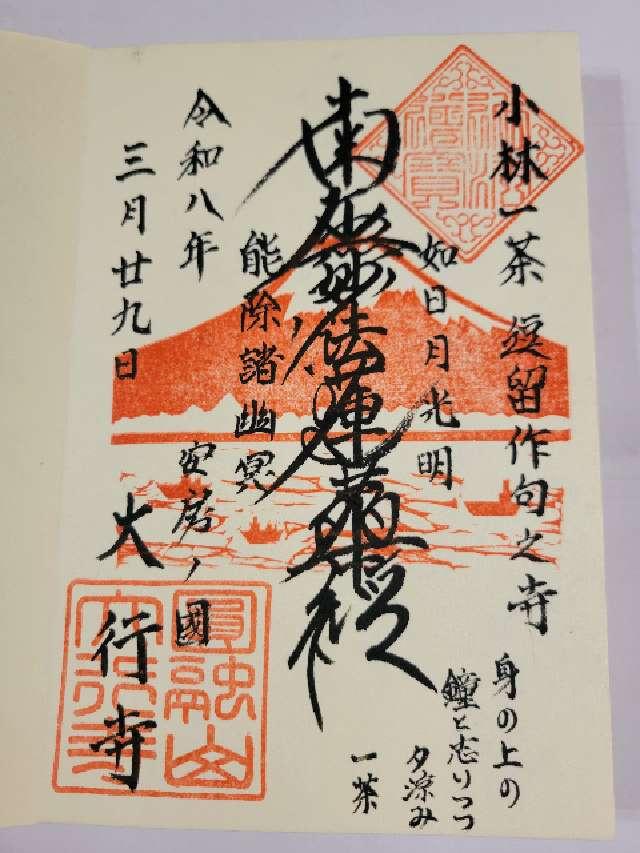 小林一茶 逗留作句之寺
如日月光明
南無妙法蓮華経
能除諸幽冥
令和八年
三月廿九日
安房ノ國
大行寺
身の上の
鐘と志りつつ
夕涼み
一茶
圓融山
大行寺